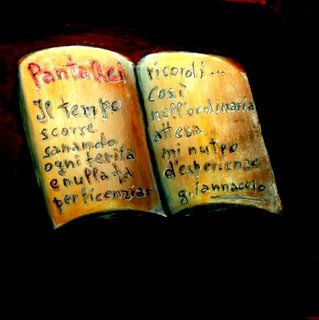 PantaRei
Il tempo
scorre
sanando
ogni ferita
e nulla fa
per licenziar
ricordi...
Così
nell'ordinaria
attesa
mi nutro
d'esperienze
g. iannaccio